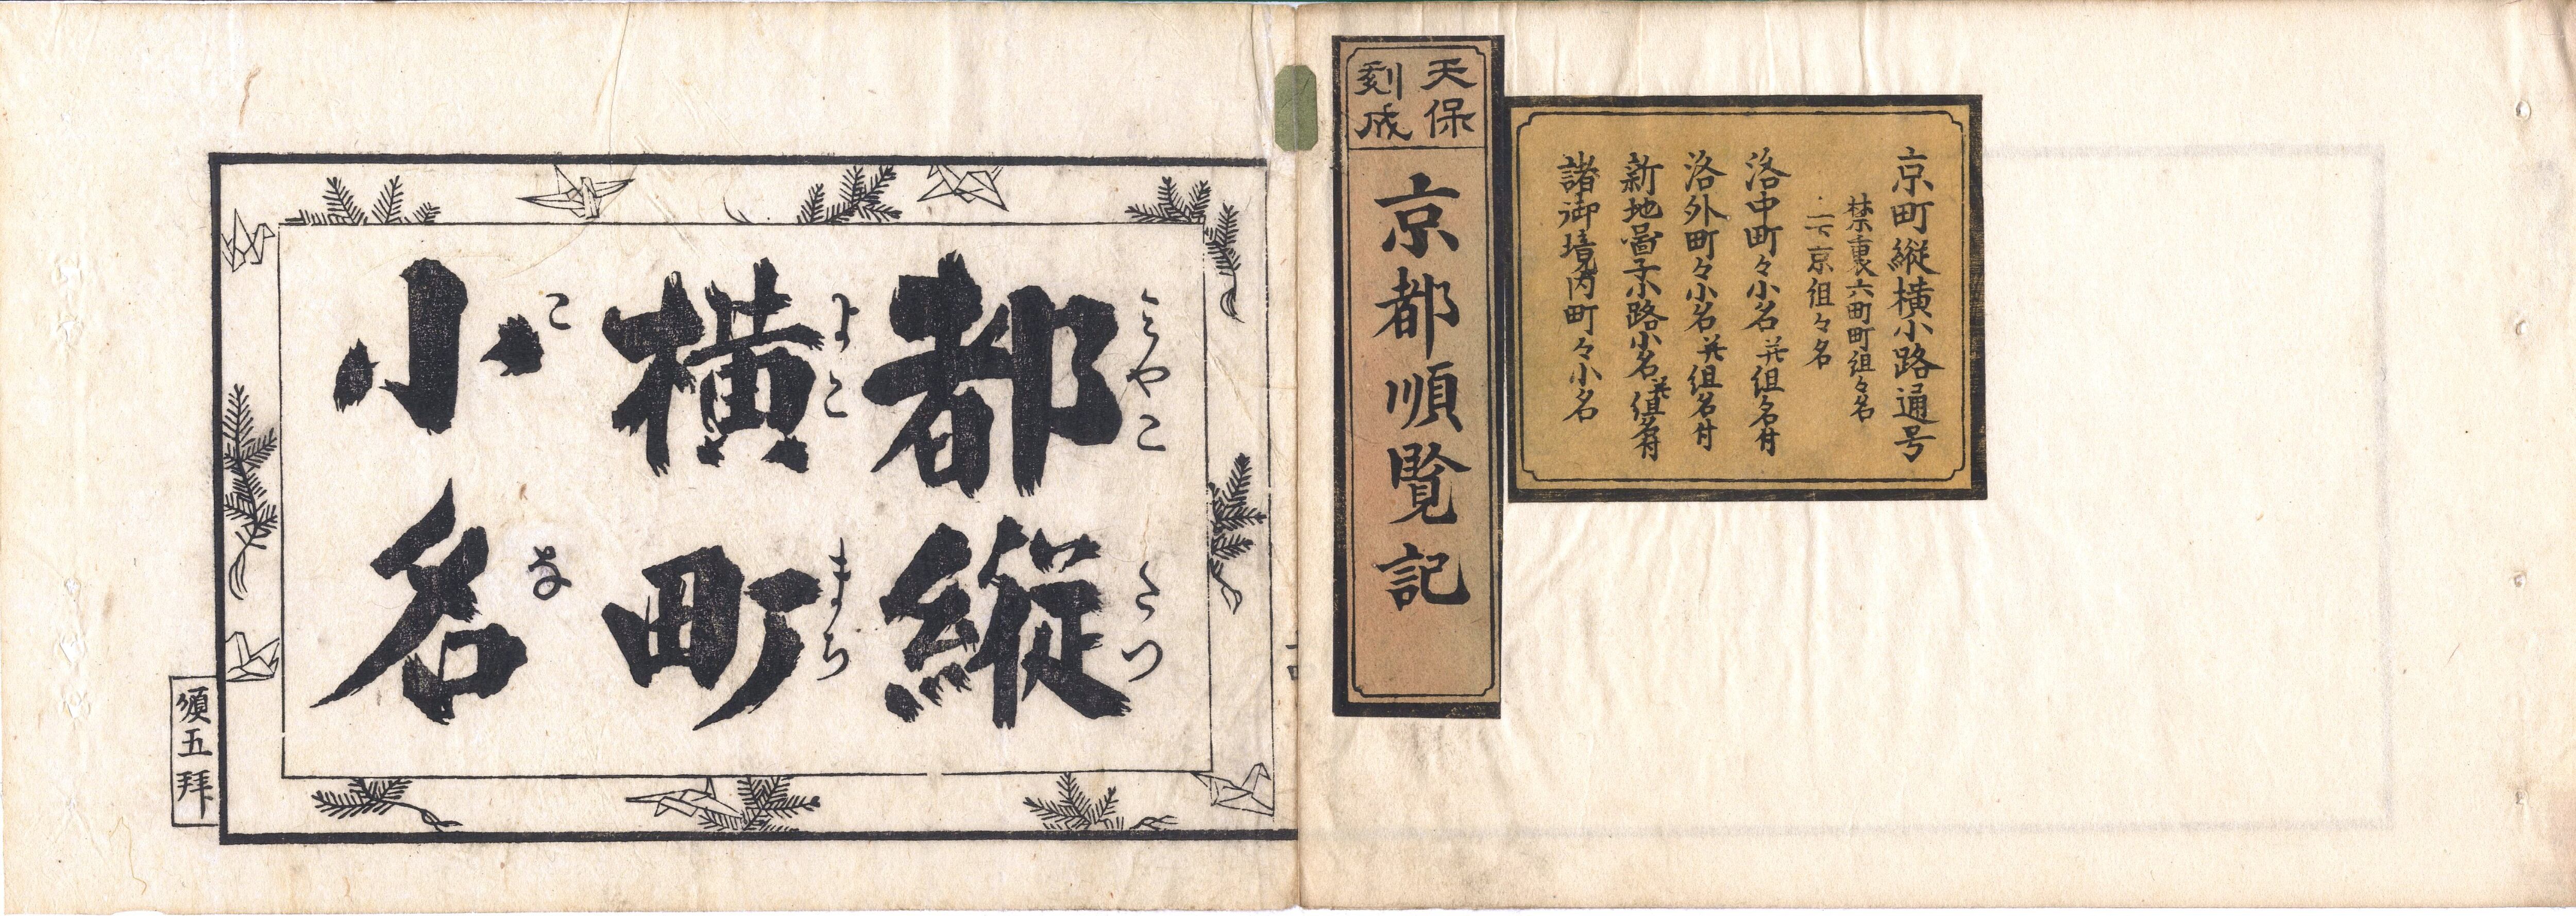 京町縦横小路通号
禁裏六町町組々名
二下京組々名
洛中町々小名并組名付
洛外町々小名并組名付
新地啚子小路小名并組名付
諸御境内町々小名
天保
刻成
京都順覧記
都縦
みやこ たつ
横町
よこ まち
小名
こ な
頌五拝